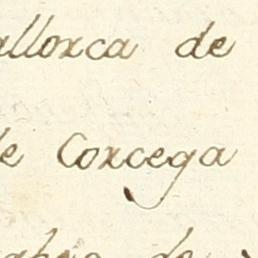 allorca de
de Corcega
de